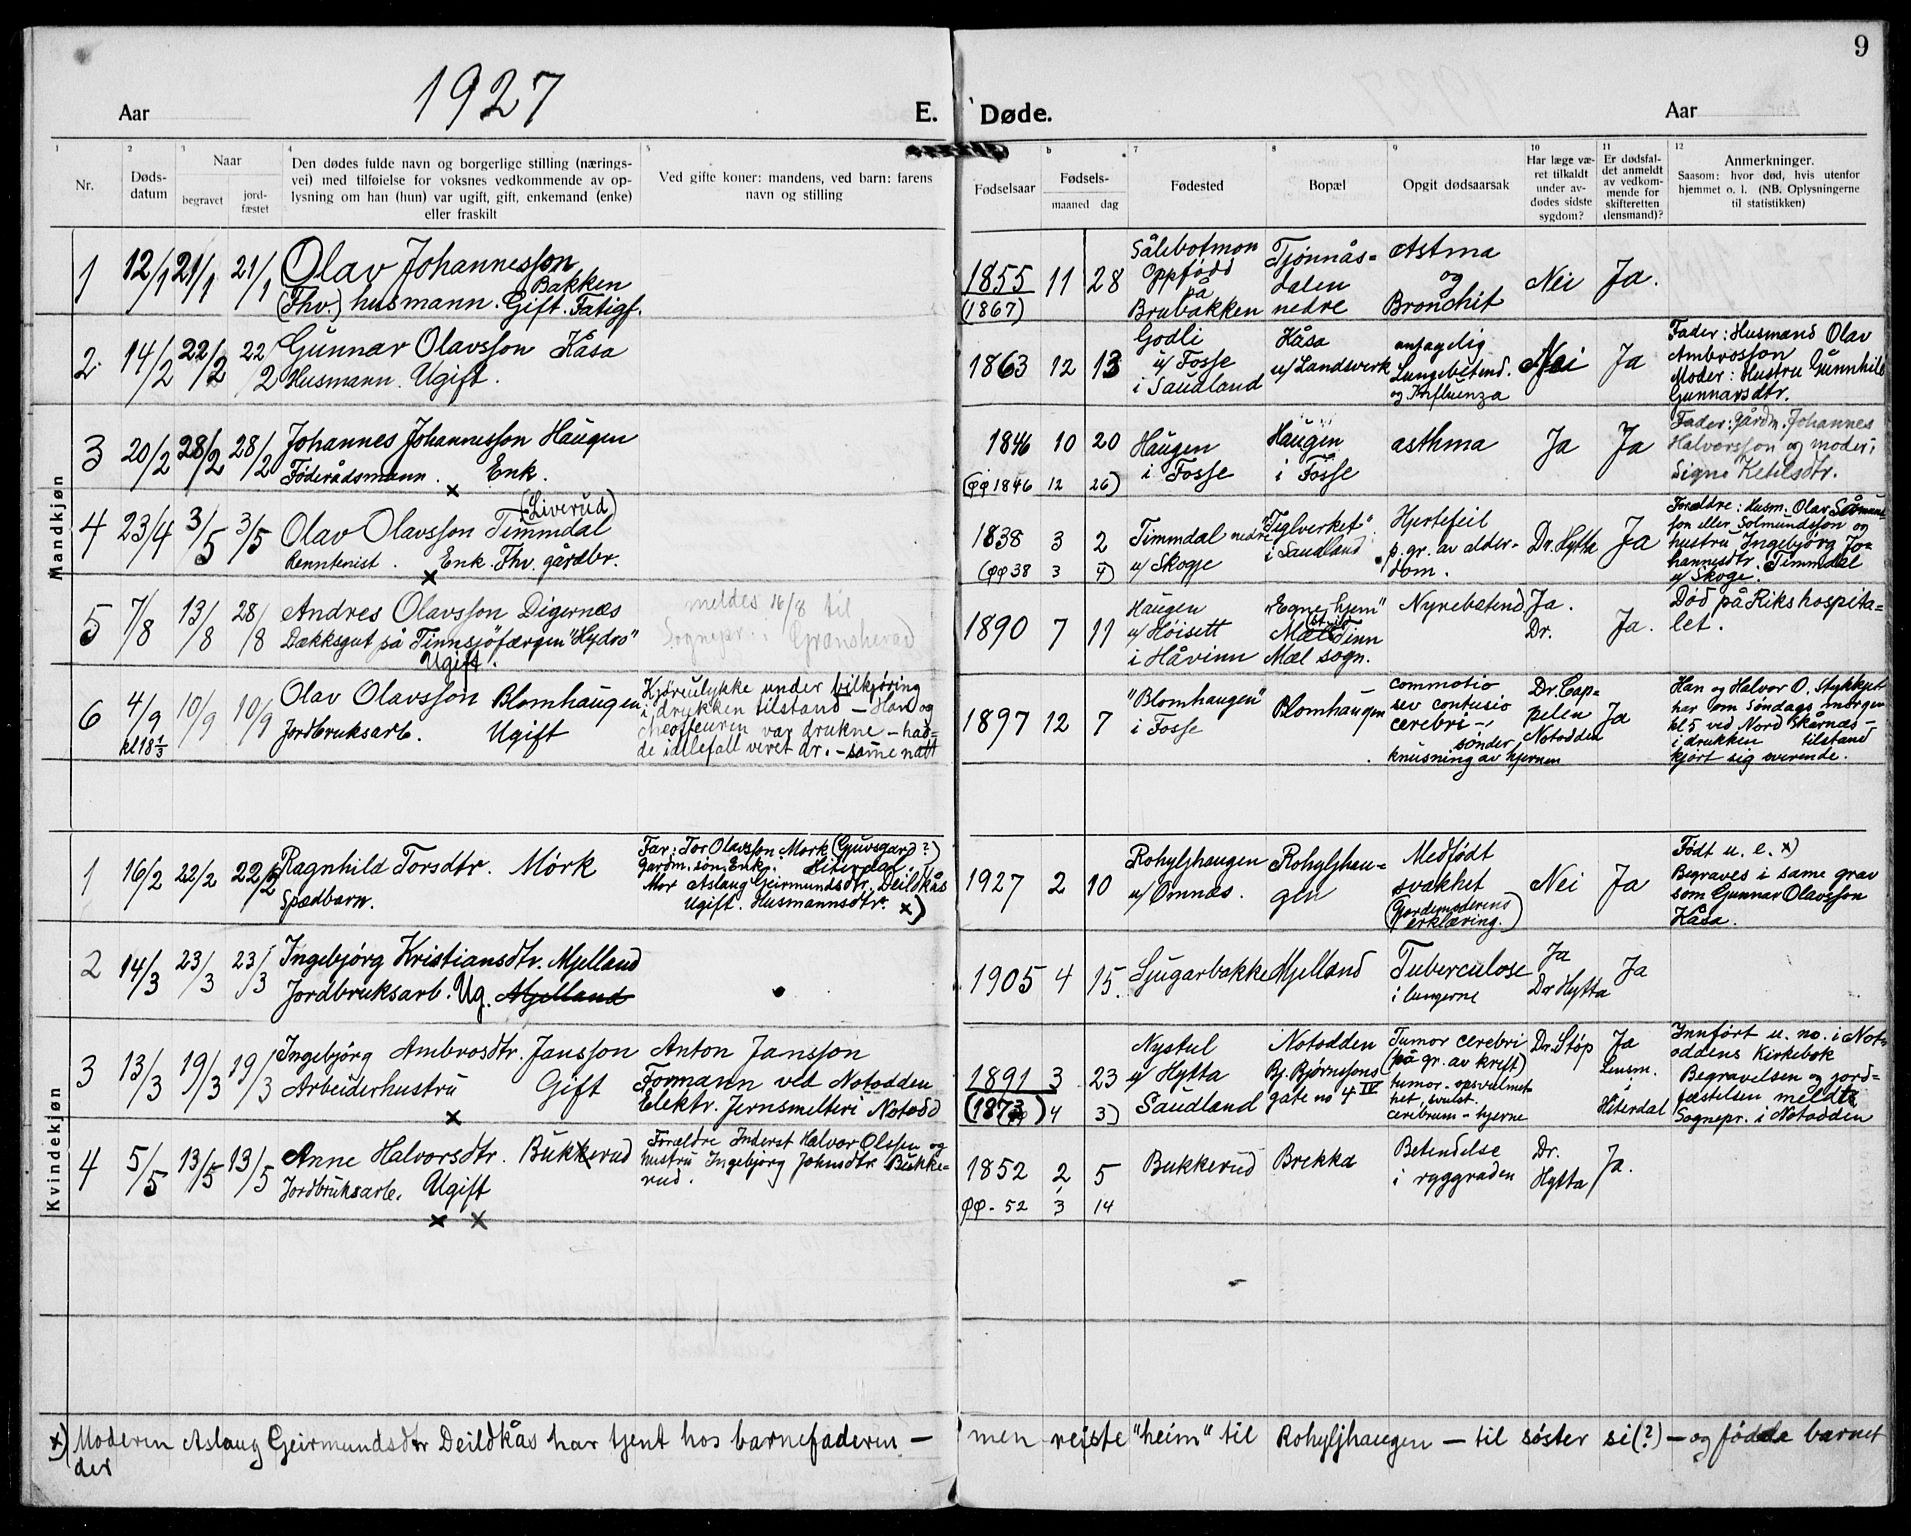 9
1927
Aar
E. Døde.
Aar
1
2
3
4
5
6
7
8
9
10
11
12
Nr.
Døds-
datum
Naar
begravet
jord-
fæstet
Den dødes fulde navn og borgerlige stilling (nærings-
vei) med tilføielse for voksnes vedkommende av op-
lysning om han (hun) var ugift, gift, enkemand (enke)
eller fraskilt
Ved gifte koner: mandens, ved barn: farens
navn og stilling
Fødselsaar
Fødsels-
maaned dag
Fødested
Bopæl
Opgit dødsaarsak
Har læge væ-
ret tilkaldt
under av-
dødes sidste
sygdom?
Er dødsfal-
det anmeldt
av vedkom-
mende for
skifteretten
(lensmand)?
Anmerkninger.
Saasom: hvor død, hvis utenfor
hjemmet o. l. (NB. Oplysningerne
til statistikken)
Mandkjøn
1
12/1
21/1
21/1
Olav Johannesson
Bakken
(Fhv.) husmann. Gift. Fatigf.
1855
(1867)
11
28
Sålebotmon
Oppfødd
på
Brubakken
Tjønnås-
dalen
nedre
Astma
og
Bronchit
Nei
Ja.
2
14/2
22/2
22/2
Gunnar Olavsson Håsa
Husmann. Ugift.
1863
12
13
Godli
u/ Fosse
i Saudland
Håsa
u/ Landsverk
antagelig
Lungebetend.
og Influenza
Nei
Ja
Fader: Husmand Olav
Ambrosson
Moder: Hustru Gunnhild
Gunnarsdtr.
3
20/2
28/2
28/2
Johannes Johannesson Haugen
Føderådsmann. Enk.
x
1846
10
20
(φφ 1846 12 26)
Haugen
i Fosse
Haugen
i Fosse
asthma
Ja
Ja
Fader: Gårdm. Johannes
Halvorsson og moder:
Signe Ketilsdtr.
4
23/4
3/5
3/5
(Liverud)
Olav Olavsson Timmdal
Renntenist. Enk. Fhv. gårdbr.
x
1838
3
2
(φφ 38 3 4)
Timmdal nedre
u/ Skogje
"Teglverket"
i Saudland
Hjertefeil
p. gr. av alder-
dom.
Dr. Hytta
Ja
Foreldre: Husm. Olav
son eller Solmundsson og
hustru Ingebjørg Jo-
hannesdtr. Timmdal
u/ Skoge.
5
7/8
13/8
28/8
Andres Olavsson Digernæs
Dækksgut på Tinnsjöfærgen "Hydro"
Ugift.
meldes 16/8 til
Sognepr. i Gransherad
1890
7
11
Haugen
u/ Høisett
i Håvinn
"Egne hjem"
Mæl Tinn
Mæl sogn.
Nyrebetend
Ja.
Dr.
Ja.
Død på Rikshospita-
let.
6
4/9
kl 18 1/3
10/9
10/9
Olav Olavsson Blomhaugen
Jordbruksarb. Ugift
Kjøreulykke under bilkjøring
i drukken tilstand – Han og
cheofføren var drukne – had-
de idlefall veret dr. – same natt
1897
12
7
"Blomhaugen"
i Fosse
Blomhaugen
commotio
sev contusio
cerebri –
sønder
knusning av hjernen
Dr. Cap-
pelen
Notodden
Ja
Han og Halvor O. Stykket
har som Søndags morgen
kl 5 ved Nord Skårnæs –
i drukken tilstand
kjørt sig overende.
Kvindekjøn
1
16/2
22/2
22/2
Ragnhild Torsdtr. Mørk
Spædbarn.
Far: Tor Olavsson Mork (Gjuvsgard?)
Gardm. søn, Enk. Hiterdal.
Mor Aslaug Geirmundsdtr. Deildkås
Ugift. Husmannsdtr. x)
1927
2
10
Rohyljhaugen
u/ Ømnæs.
Rohyljhau-
gen
Medfødt
svakhet
(Gordemoderens
erklæring.)
Nei
Ja
Født u. e. x)
Begraves i same grav
som Gunnar Olavsson
Håsa.
2
14/3
23/3
23/3
Ingebjørg Kristiansdtr. Mjelland
Jordbruksarb. Ug. Mjelland
1905
4
15.
Ljugarbakke
Mjelland
Tuberculose
i lungerne
Ja
Dr Hytta
Ja
3
13/3
19/3
19/3
Ingebjørg Ambrosdtr. Jansson
Arbeiderhustru Gift
x
Anton Jansson
Formann ved Notodden
Elektr. Jernsmelteri Notodd
1891
3
23
(1873) 4 3)
Nystul
u/ Hytta
Saudland
Notodden
Bj. Bjørnssons
gate no 4 IV
Tumor cerebri
(på gr. av kreft)
tumor – opsvulmet-
het, svulst.
cerebrum – hjerne
Dr. Støp
Ja
Lensm.
i
Hiterdal
Innført u. no. i Not-
oddens Kirkebok
Begravelsen og jord-
fæstelsen meldt
Sognepr. i Notodden
4
5/5
13/5
13/5
Anne Halvorsdtr. Bukkerud
Jordbruksarb. Ugift
x x
Forældre Inderst Halvor Olssen og
hustru Ingebjørg Johnsdtr. Bukke-
rud.
1852
2
5
φφ - 52 3 14
Bukkerud
Brekka
Betendelse
i ryggraden
Dr.
Hytta
Ja.
x) Moderen Aslaug Geirmundsdtr Deildkås har tjent hos barnefaderen – men reiste "heim" til Rohyljhaugen – til søster si (?) – og fødde barnet
der